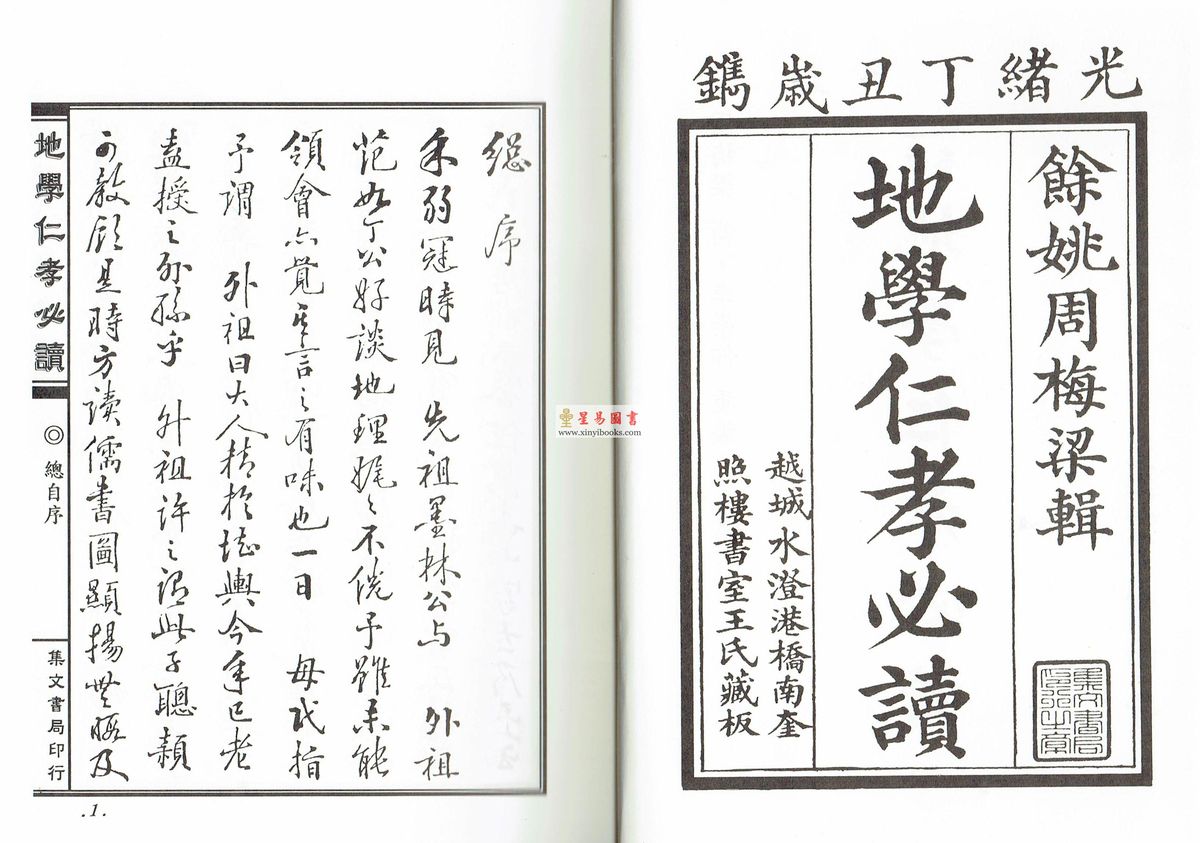 光緒丁丑歲鐫
餘姚周梅梁輯
地學仁孝必讀
越城水澄港橋南奎
照樓書室王氏藏板
集文書局
印行之章
星易圖書
www.xinyibooks.com
總序
余弱冠時見 先祖墨林公與 外祖
范如丁公好談地理娓之不倦予雖未能
領會亦覺其言之有味也一日 母氏指
予謂 外祖曰大人精於堪輿今年已老
盍授之外孫乎 外祖許之謂此子聰穎
可教顧是時方讀儒書圖顯揚無暇及
地學仁孝必讀
◎總自序
集文書局印行
.1.